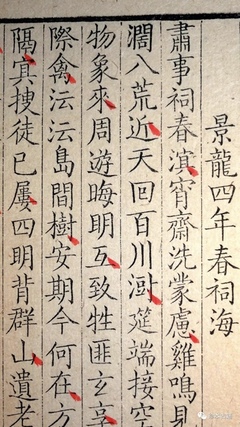 景龍四年春祠海
肅事祠春溟宵齋洗蒙慮雞鳴見
濶八荒近天回百川澍筵端接空
物象來周遊晦明互致牲匪玄享
際禽沄沄島間樹安期今何在方
隔冥搜徒已屢四明背群山遺老